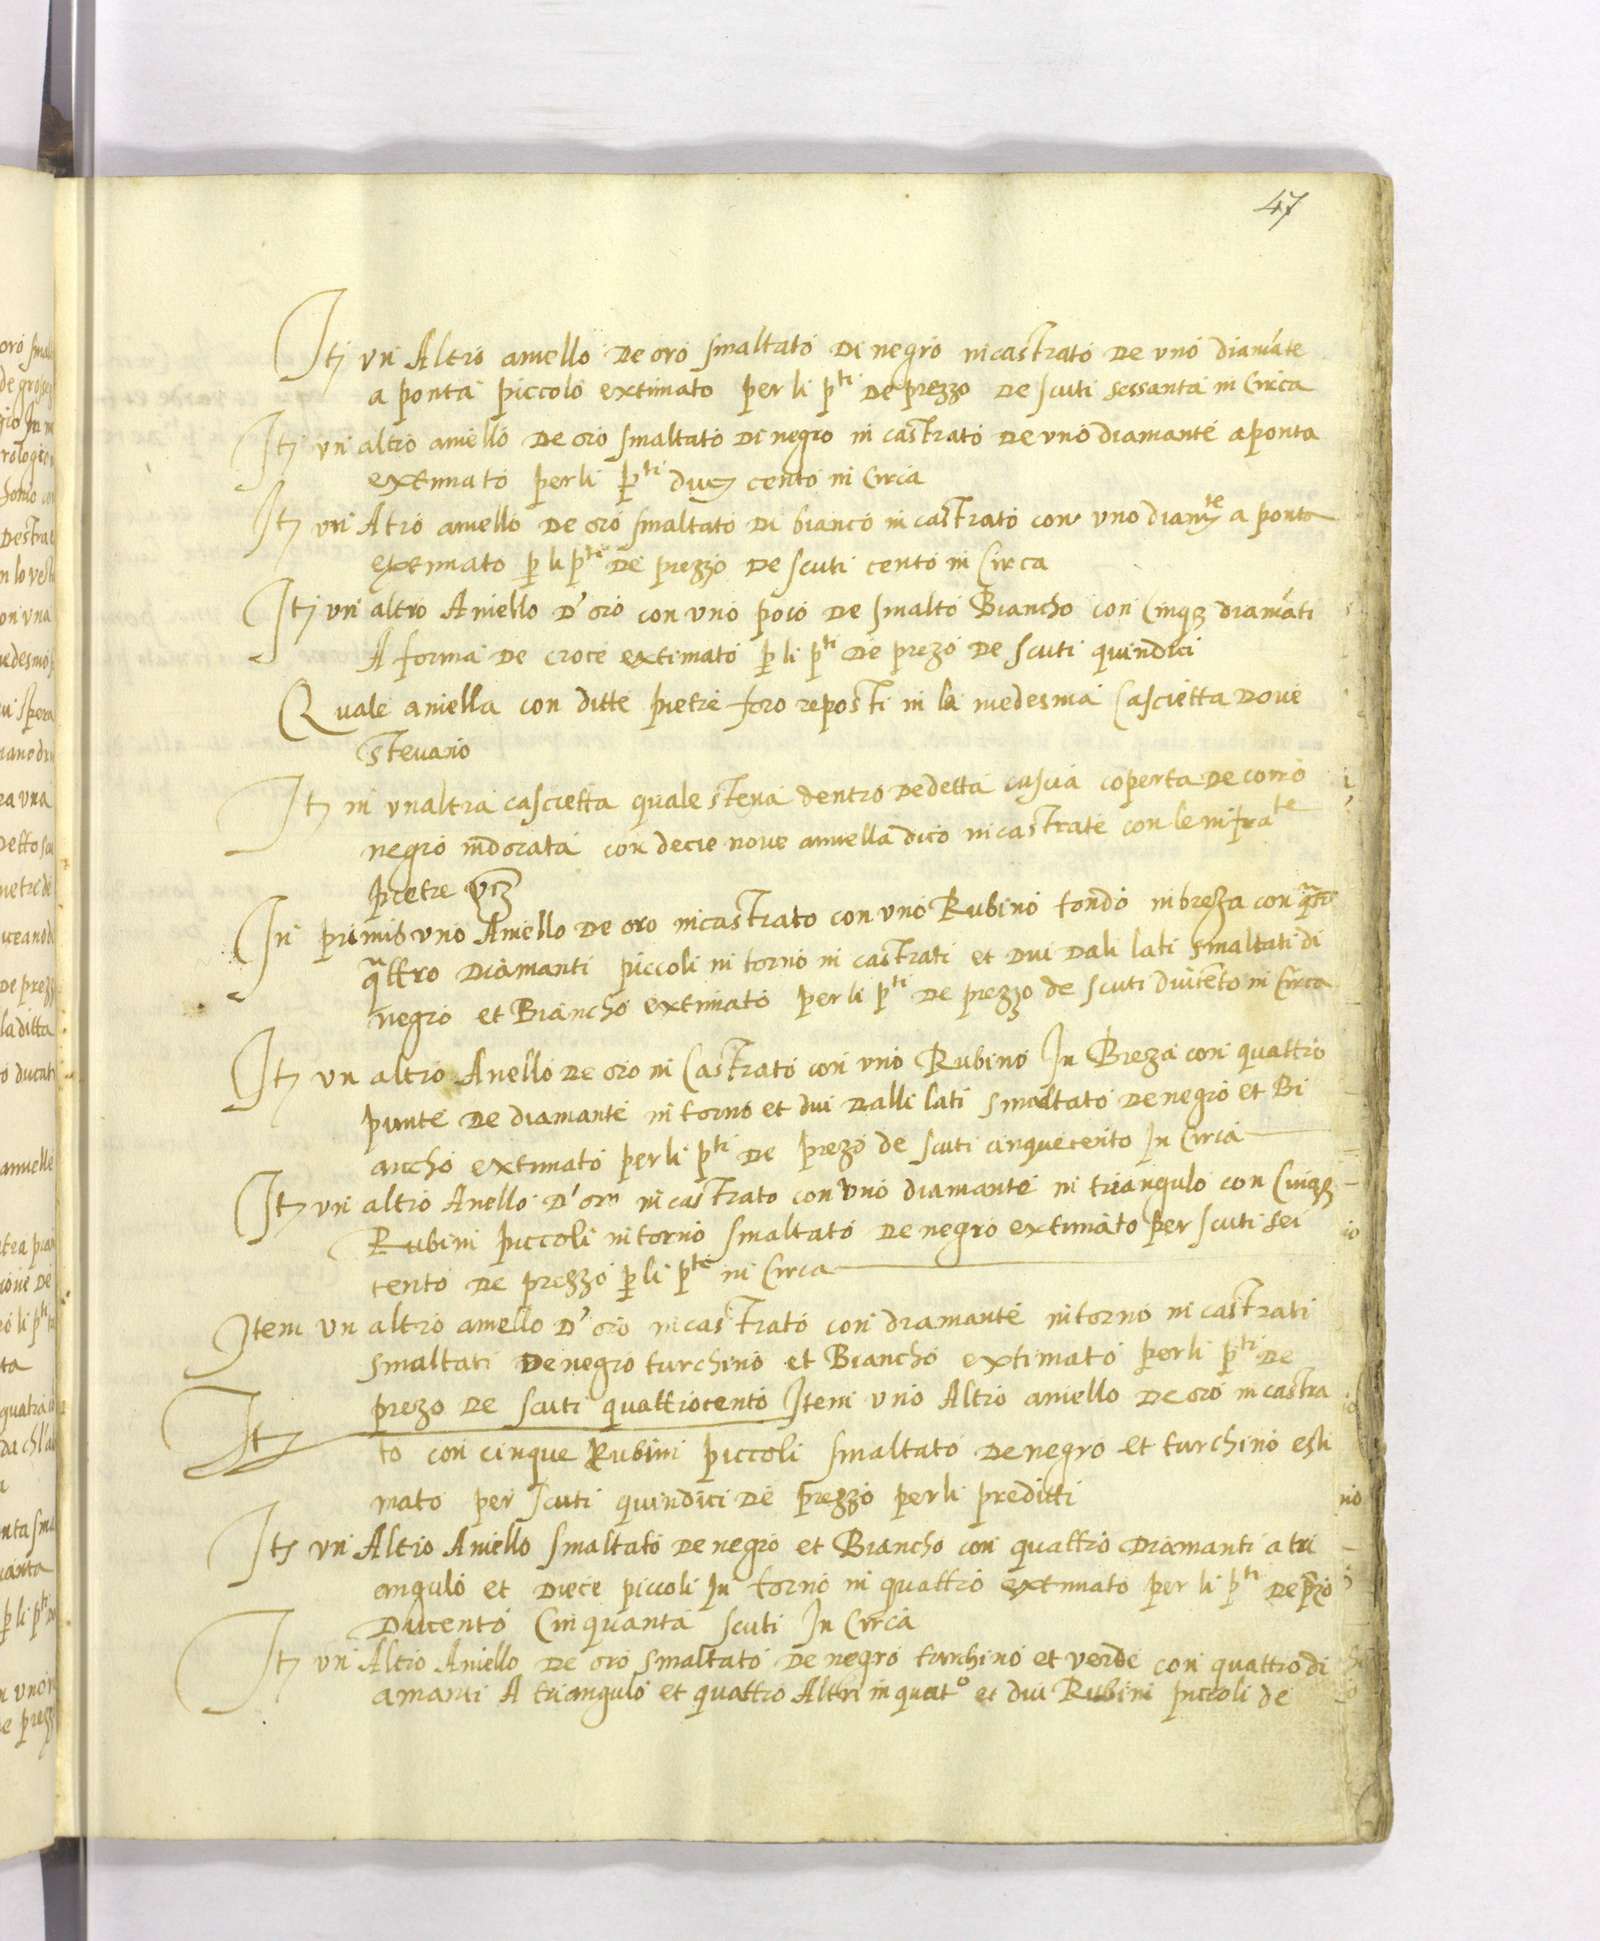 47
Itz un Altro aniello de oro smaltato di negro incastrato de uno diamãte
a ponta piccolo extimato per li p.ti de prezzo de scuti sessanta in circa
Itz un altro aniello de oro smaltato di negro in castrato de uno diamante a ponta
extimato per li p.ti cento in circa
Itz un Atro aniello de oro smaltato di bianco in castrato con uno diam.te a ponta
extimato p li p.ti de prezzo de scuti cento in Circa
Itz un altro Aniello d'oro con uno poco de smalto Biancho con Cinqz diamãti
A forma de croce extimato p li p.ti de prezo de scuti quindici
Quale aniella con ditte pietre foro reposti in la medesma Cascietta dove
stevano
Itz in unaltra cascietta quale steva dentro de detta cascia coperta de corio
negro indorata con decie nove aniella dico incastrate con le infra.te
pietre vcz
In primis uno Aniello de oro incastrato con uno Rubino tondo in brezza con
qattro Diamanti piccoli in torno in castrati et dui dali lati smaltati di
negro et Biancho extimato per li p.ti de prezzo de scuti ducẽto in Circa
Itz un altro Anello de oro in Castrato con uno Rubino In Breza con quattro
punte de diamante in torno et dui dalli lati smaltato de negro et Bi
ancho extimato per li p.ti de prezo de scuti cinquecento In Circa
Itz un altro Anello d'oro incastrato con uno diamante in triangulo con Cinqz
Rubini piccoli in torno smaltato de negro extimato per scuti sei
cento de prezzo p li p.ti in Circa
Item un altro aniello d'oro incastrato con diamante in torno in castrati
smaltati de negro turchino et Biancho extimato per li p.ti de
prezo de scuti quattrocento Item uno Altro aniello de oro in castra
Itz to con cinque Rubini piccoli smaltato de negro et turchino esti
mato per scuti quindici de prezzo per li preditti
Itz un Altro Aniello smaltato de negro et Biancho con quattro Diamanti a tri
angulo et diece piccoli In torno in quattro extimato per li p.ti de przo
Ducento Cinquanta scuti In Circa
Itz un Altro Aniello de oro smaltato de negro turchino et verde con quattro di
amanti A triangulo et quattro Altri in quat.o et dui Rubini piccoli de